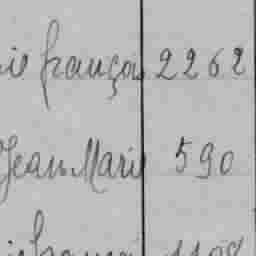 ie françois 2262
Jean Marie 590